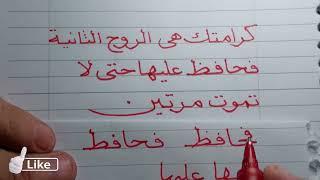 كرامتك هى الروح الثانية
فحافظ عليها حتى لا
تموت مرتين .
فحافظ فحافظ
عليها
Like